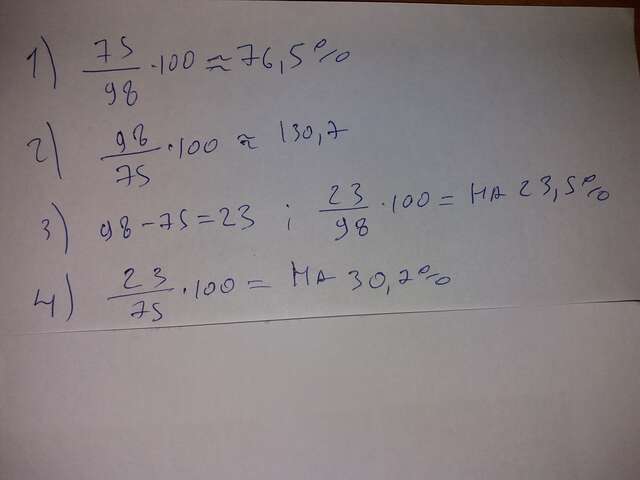 1) 75/98 · 100 ≈ 76,5%
2) 98/75 · 100 ≈ 130,7
3) 98 - 75 = 23 ; 23/98 · 100 = НА 23,5%
4) 23/75 · 100 = НА 30,7%